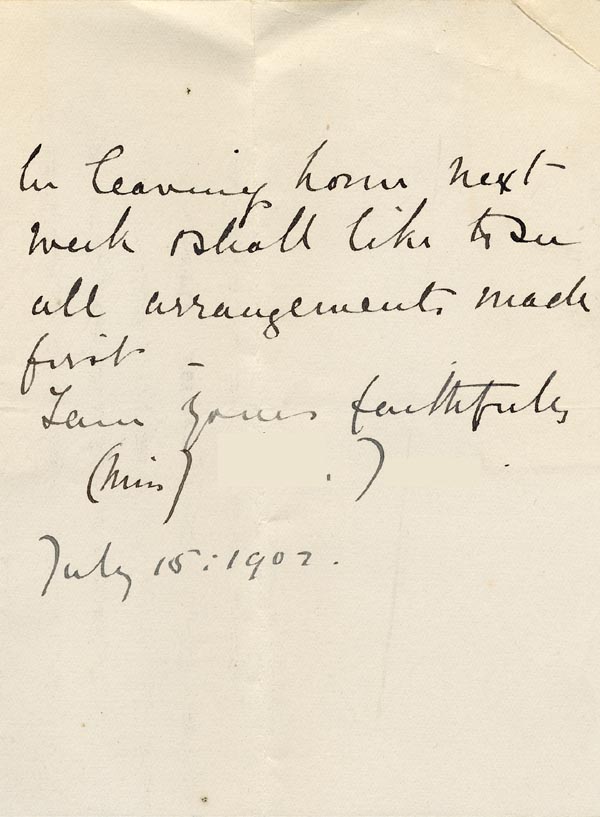 In leaving home next
week & shall like to see
all arrangements made
first –
I am yours faithfully
(Miss) . )
July 15: 1902.